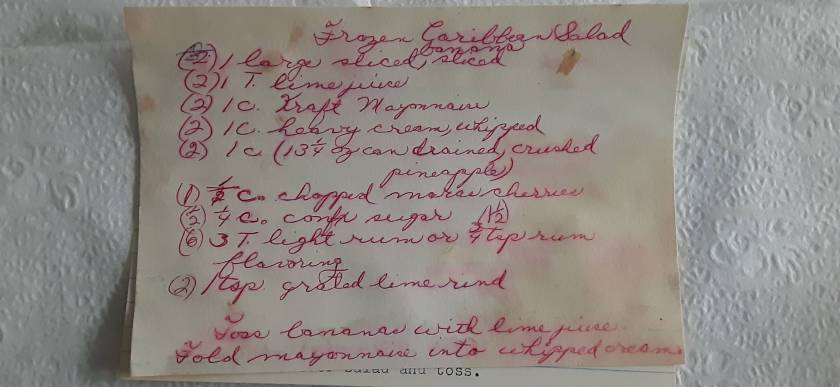 Frozen Caribbean Salad
(2) 1 large sliced banana sliced
(2) 1 T. lime juice
(2) 1 c. Kraft Mayonnaise
(2) 1 c. heavy cream, whipped
(2) 1 c (13 1/4 oz can drained, crushed
pineapple)
(1) 1/2 c. chopped mara cherries
(1/2) 1/4 c. conf. sugar
(6) 3 T. light rum or 3/4 tsp rum (1 1/2)
flavoring
(2) 1 tsp. grated lime rind
Toss bananas with lime juice
Fold mayonnaise into whipped cream
salad and toss.